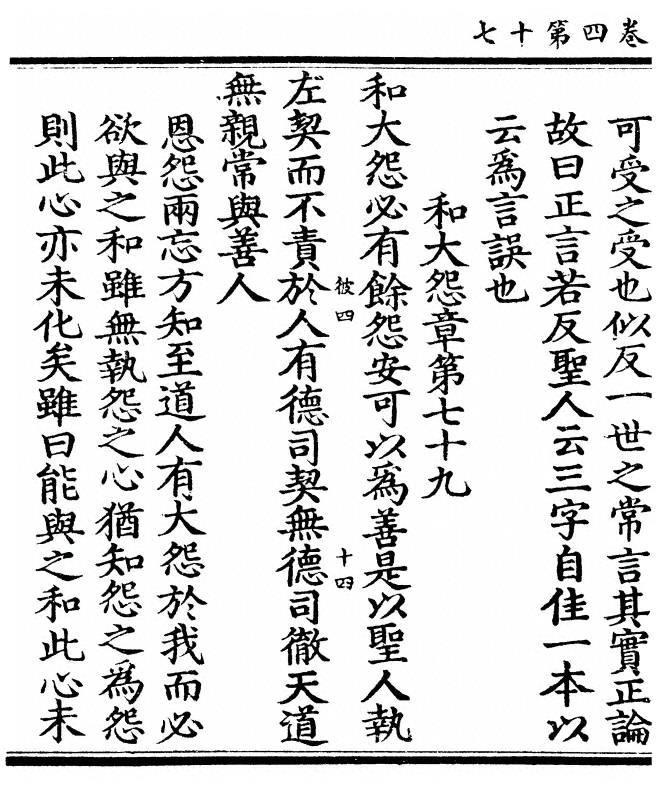 卷四第十七
可受之受也似反一世之常言其實正論
故曰正言若反聖人云三字自佳一本以
云爲言誤也
和大怨章第七十九
和大怨必有餘怨安可以爲善是以聖人執
彼四
十四
左契而不責於人有德司契無德司徹天道
無親常與善人
恩怨兩忘方知至道人有大怨於我而必
欲與之和雖無執怨之心猶知怨之爲怨
則此心亦未化矣雖曰能與之和此心未